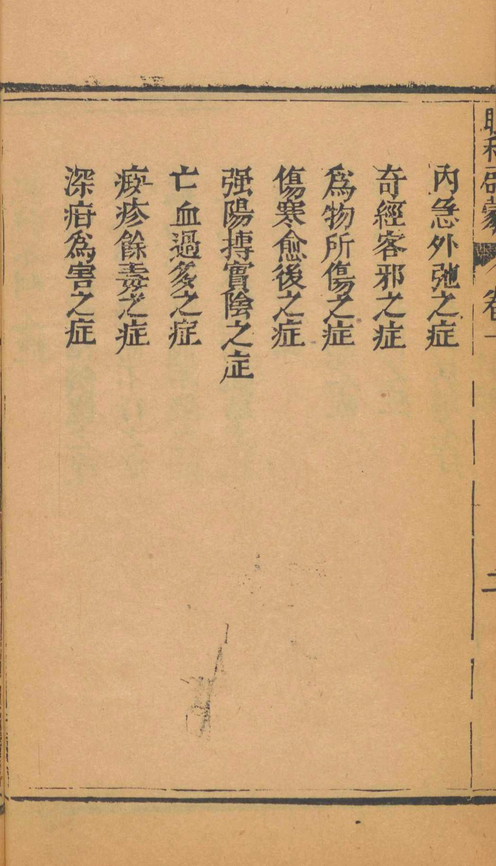 眼科啓蒙 卷一 二
內急外弛之症
奇經客邪之症
爲物所傷之症
傷寒愈後之症
强陽搏實陰之症
亡血過多之症
㾗疹餘毒之症
深疳爲害之症